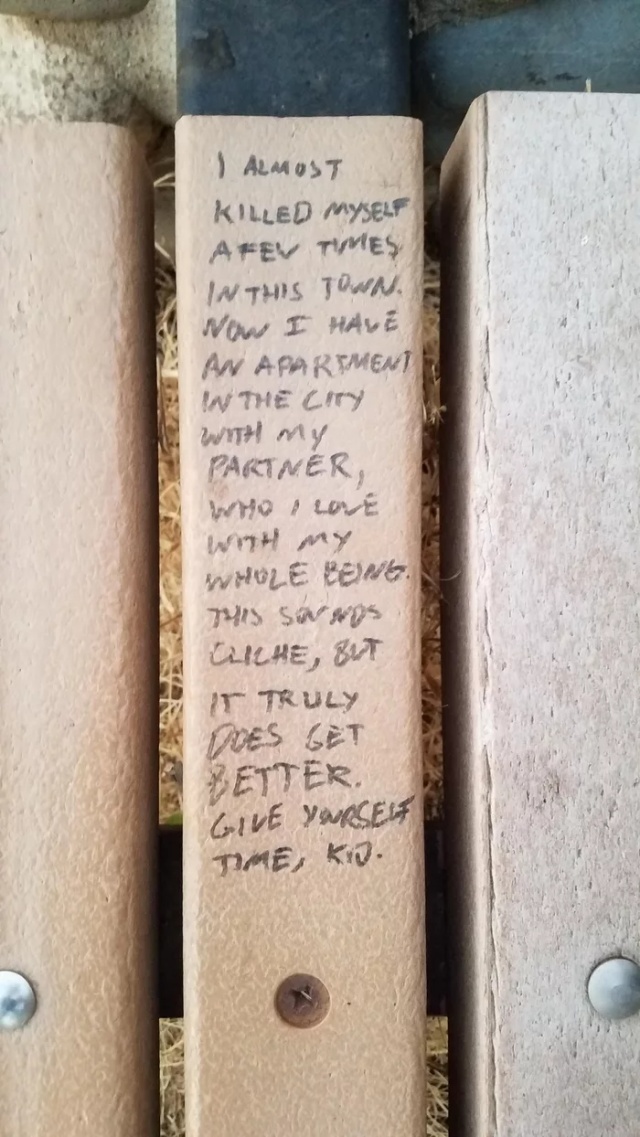 I ALMOST
KILLED MYSELF
A FEW TIMES
IN THIS TOWN.
NOW I HAVE
AN APARTMENT
IN THE CITY
WITH MY
PARTNER,
WHO I LOVE
WITH MY
WHOLE BEING.
THIS SOUNDS
CLICHE, BUT
IT TRULY
DOES GET
BETTER.
GIVE YOURSELF
TIME, KID.